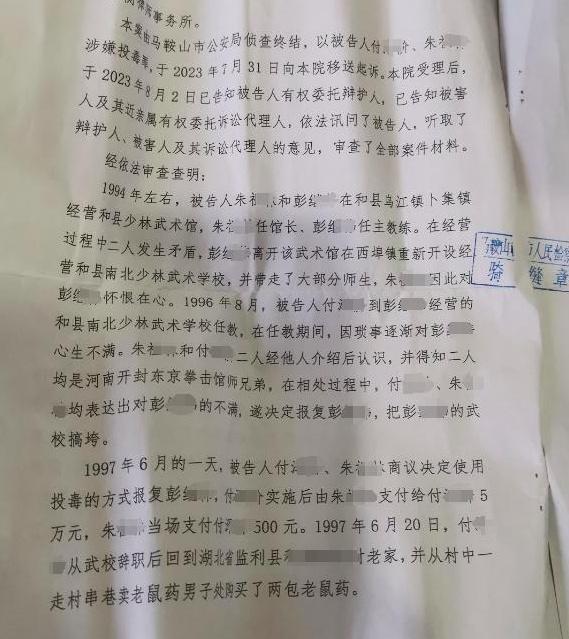 事务所。
本案由马鞍山市公安局侦查终结，以被告人付 、朱
涉嫌投毒罪，于2023年7月31日向本院移送起诉。本院受理后，
于2023年8月2日已告知被告人有权委托辩护人，已告知被害
人及其近亲属有权委托诉讼代理人，依法讯问了被告人，听取了
辩护人、被害人及其诉讼代理人的意见，审查了全部案件材料。
经依法审查查明：
1994年左右，被告人朱 和彭 在和县乌江镇卜集镇
经营和县少林武术馆，朱 任馆长、彭 任主教练。在经营
过程中二人发生矛盾，彭 离开该武术馆在西埠镇重新开设经
营和县南北少林武术学校，并带走了大部分师生，朱 因此对
彭 怀恨在心。1996年8月，被告人付 到彭 经营的
和县南北少林武术学校任教，在任教期间，因琐事逐渐对彭
心生不满。朱 和付 二人经他人介绍后认识，并得知二人
均是河南开封东京拳击馆师兄弟，在相处过程中，付 、朱
均表达出对彭 的不满，遂决定报复彭 ，把彭 的武
校搞垮。
1997年6月的一天，被告人付 、朱 商议决定使用
投毒的方式报复彭 ，付 实施后由朱 支付给付 5
万元，朱 当场支付付 500元。1997年6月20日，付
从武校辞职后回到湖北省监利县 老家，并从村中一
走村串巷卖老鼠药男子处购买了两包老鼠药。
人民检察
骑 缝章